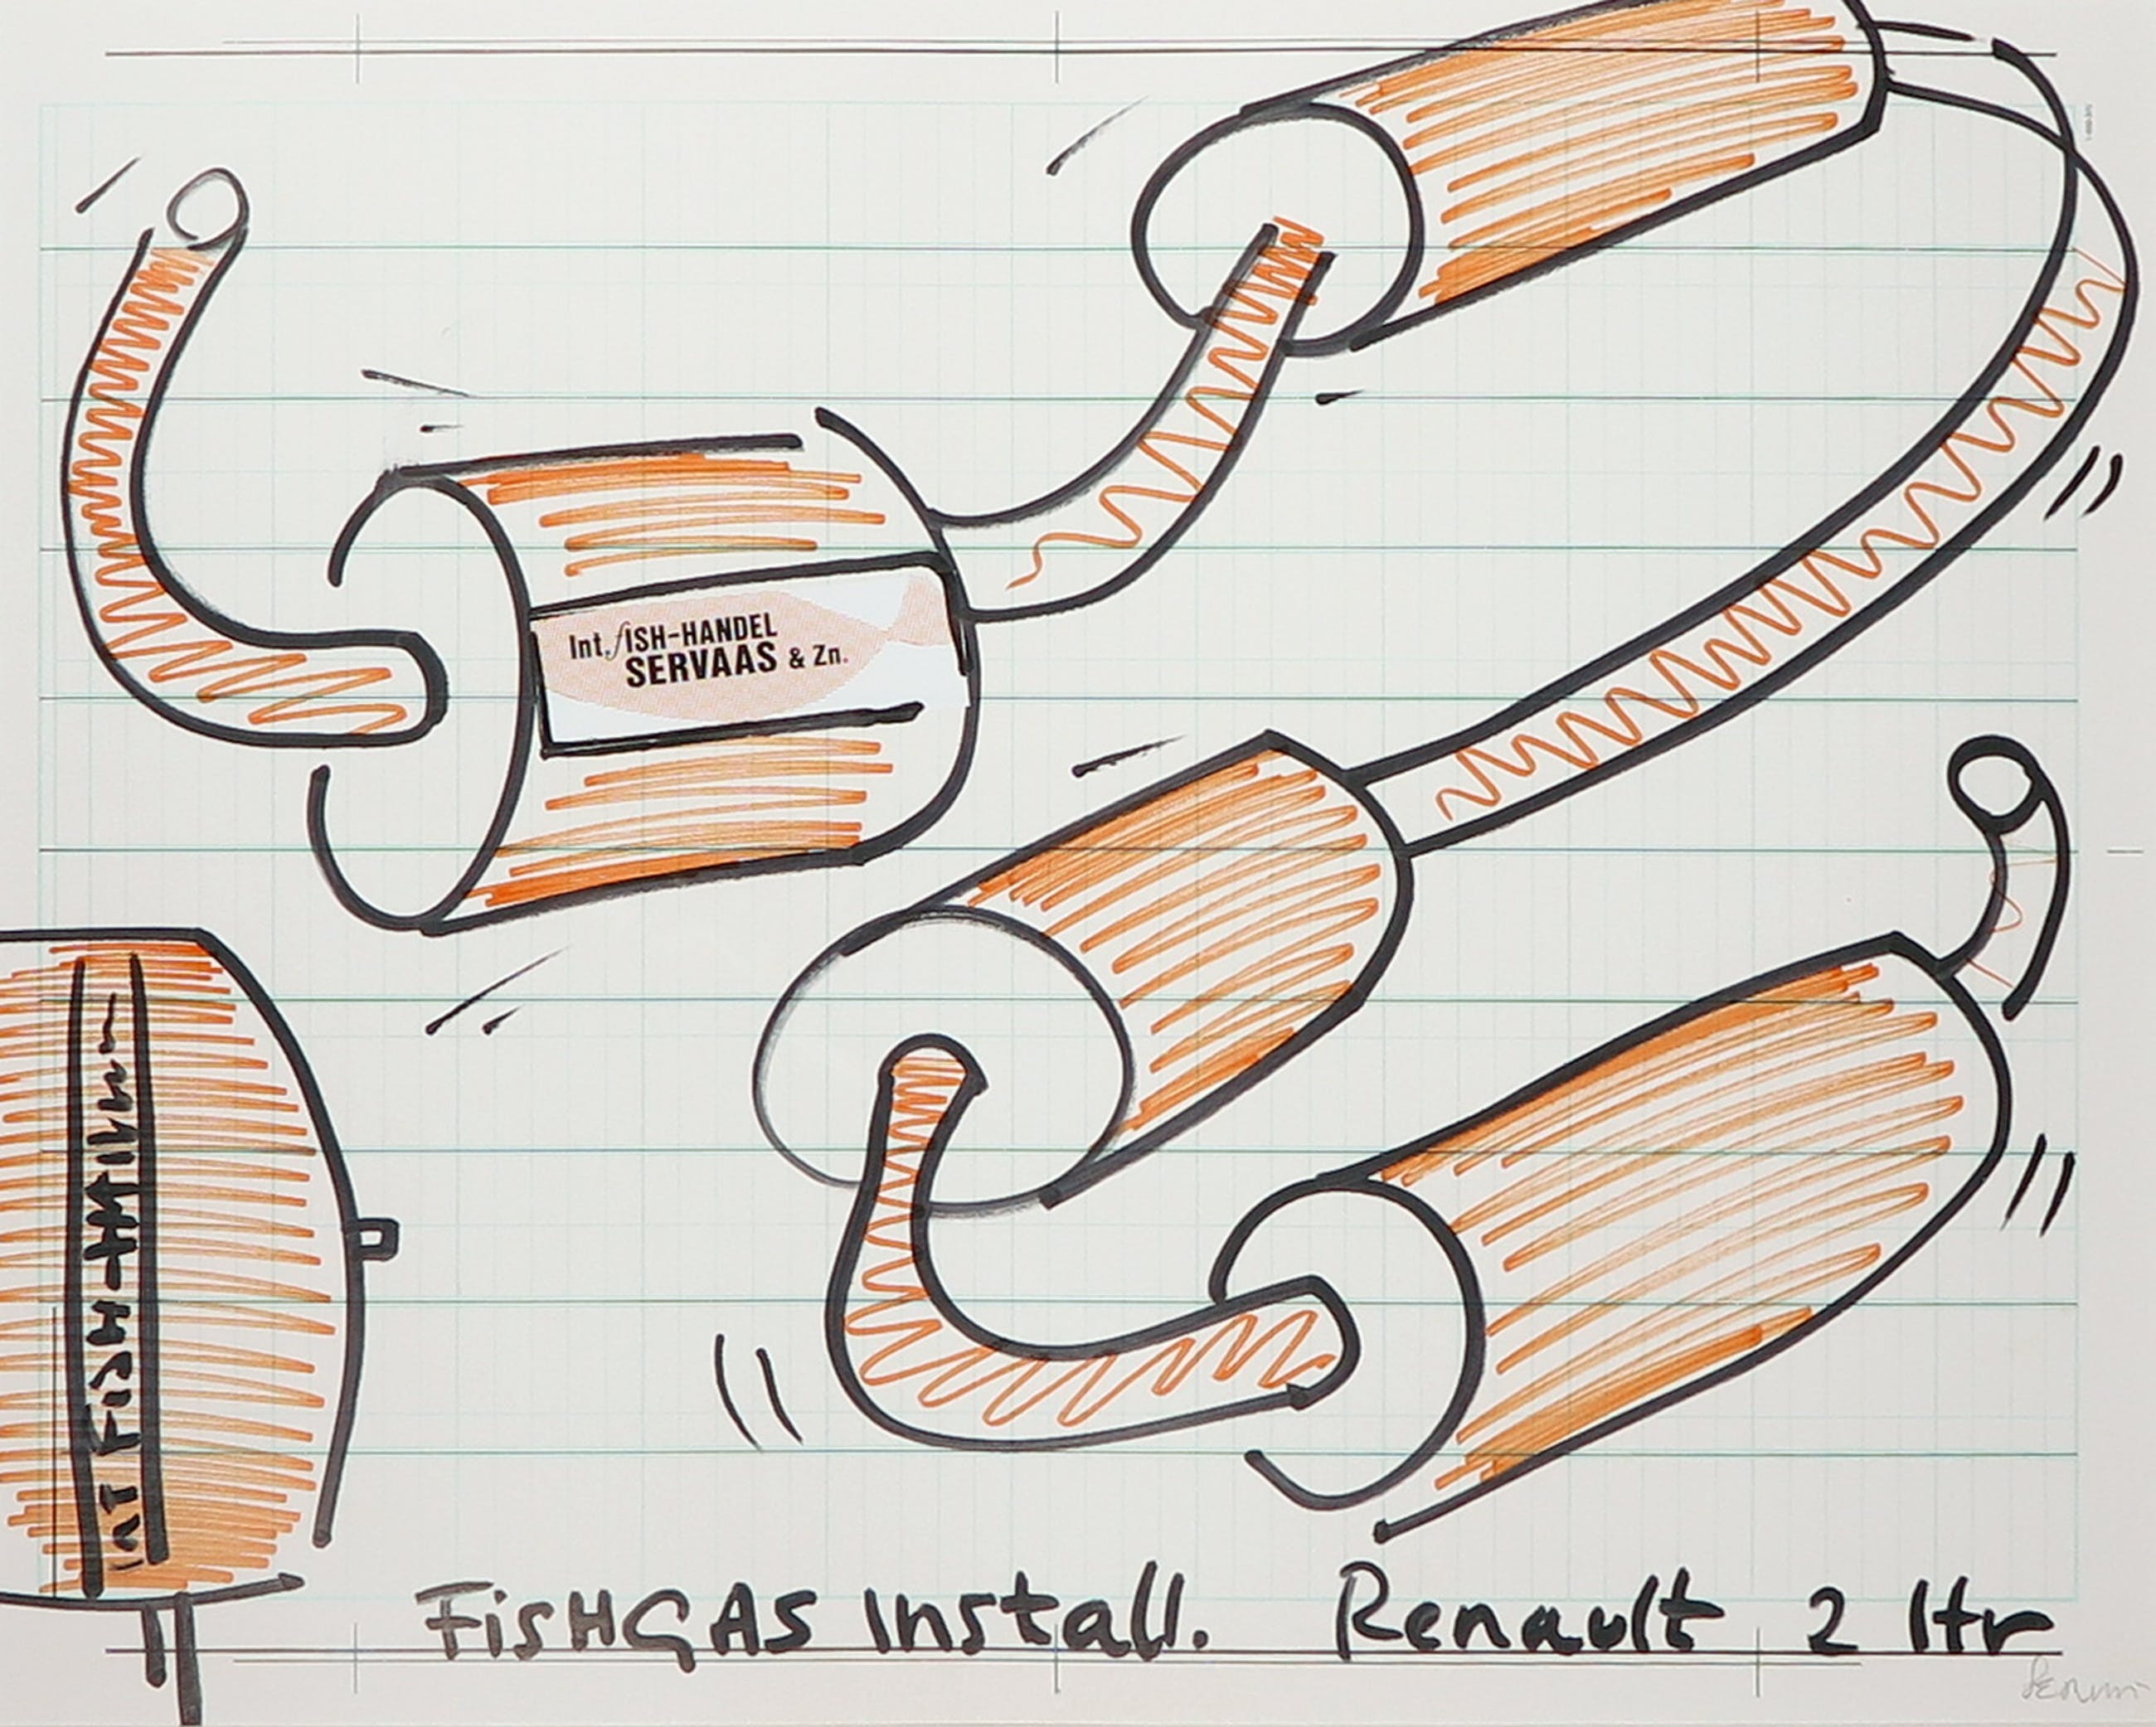 Int. fISH-HANDEL
SERVAAS & Zn.
INT FISH-HA
FisHGAS Install. Renault 2 ltr